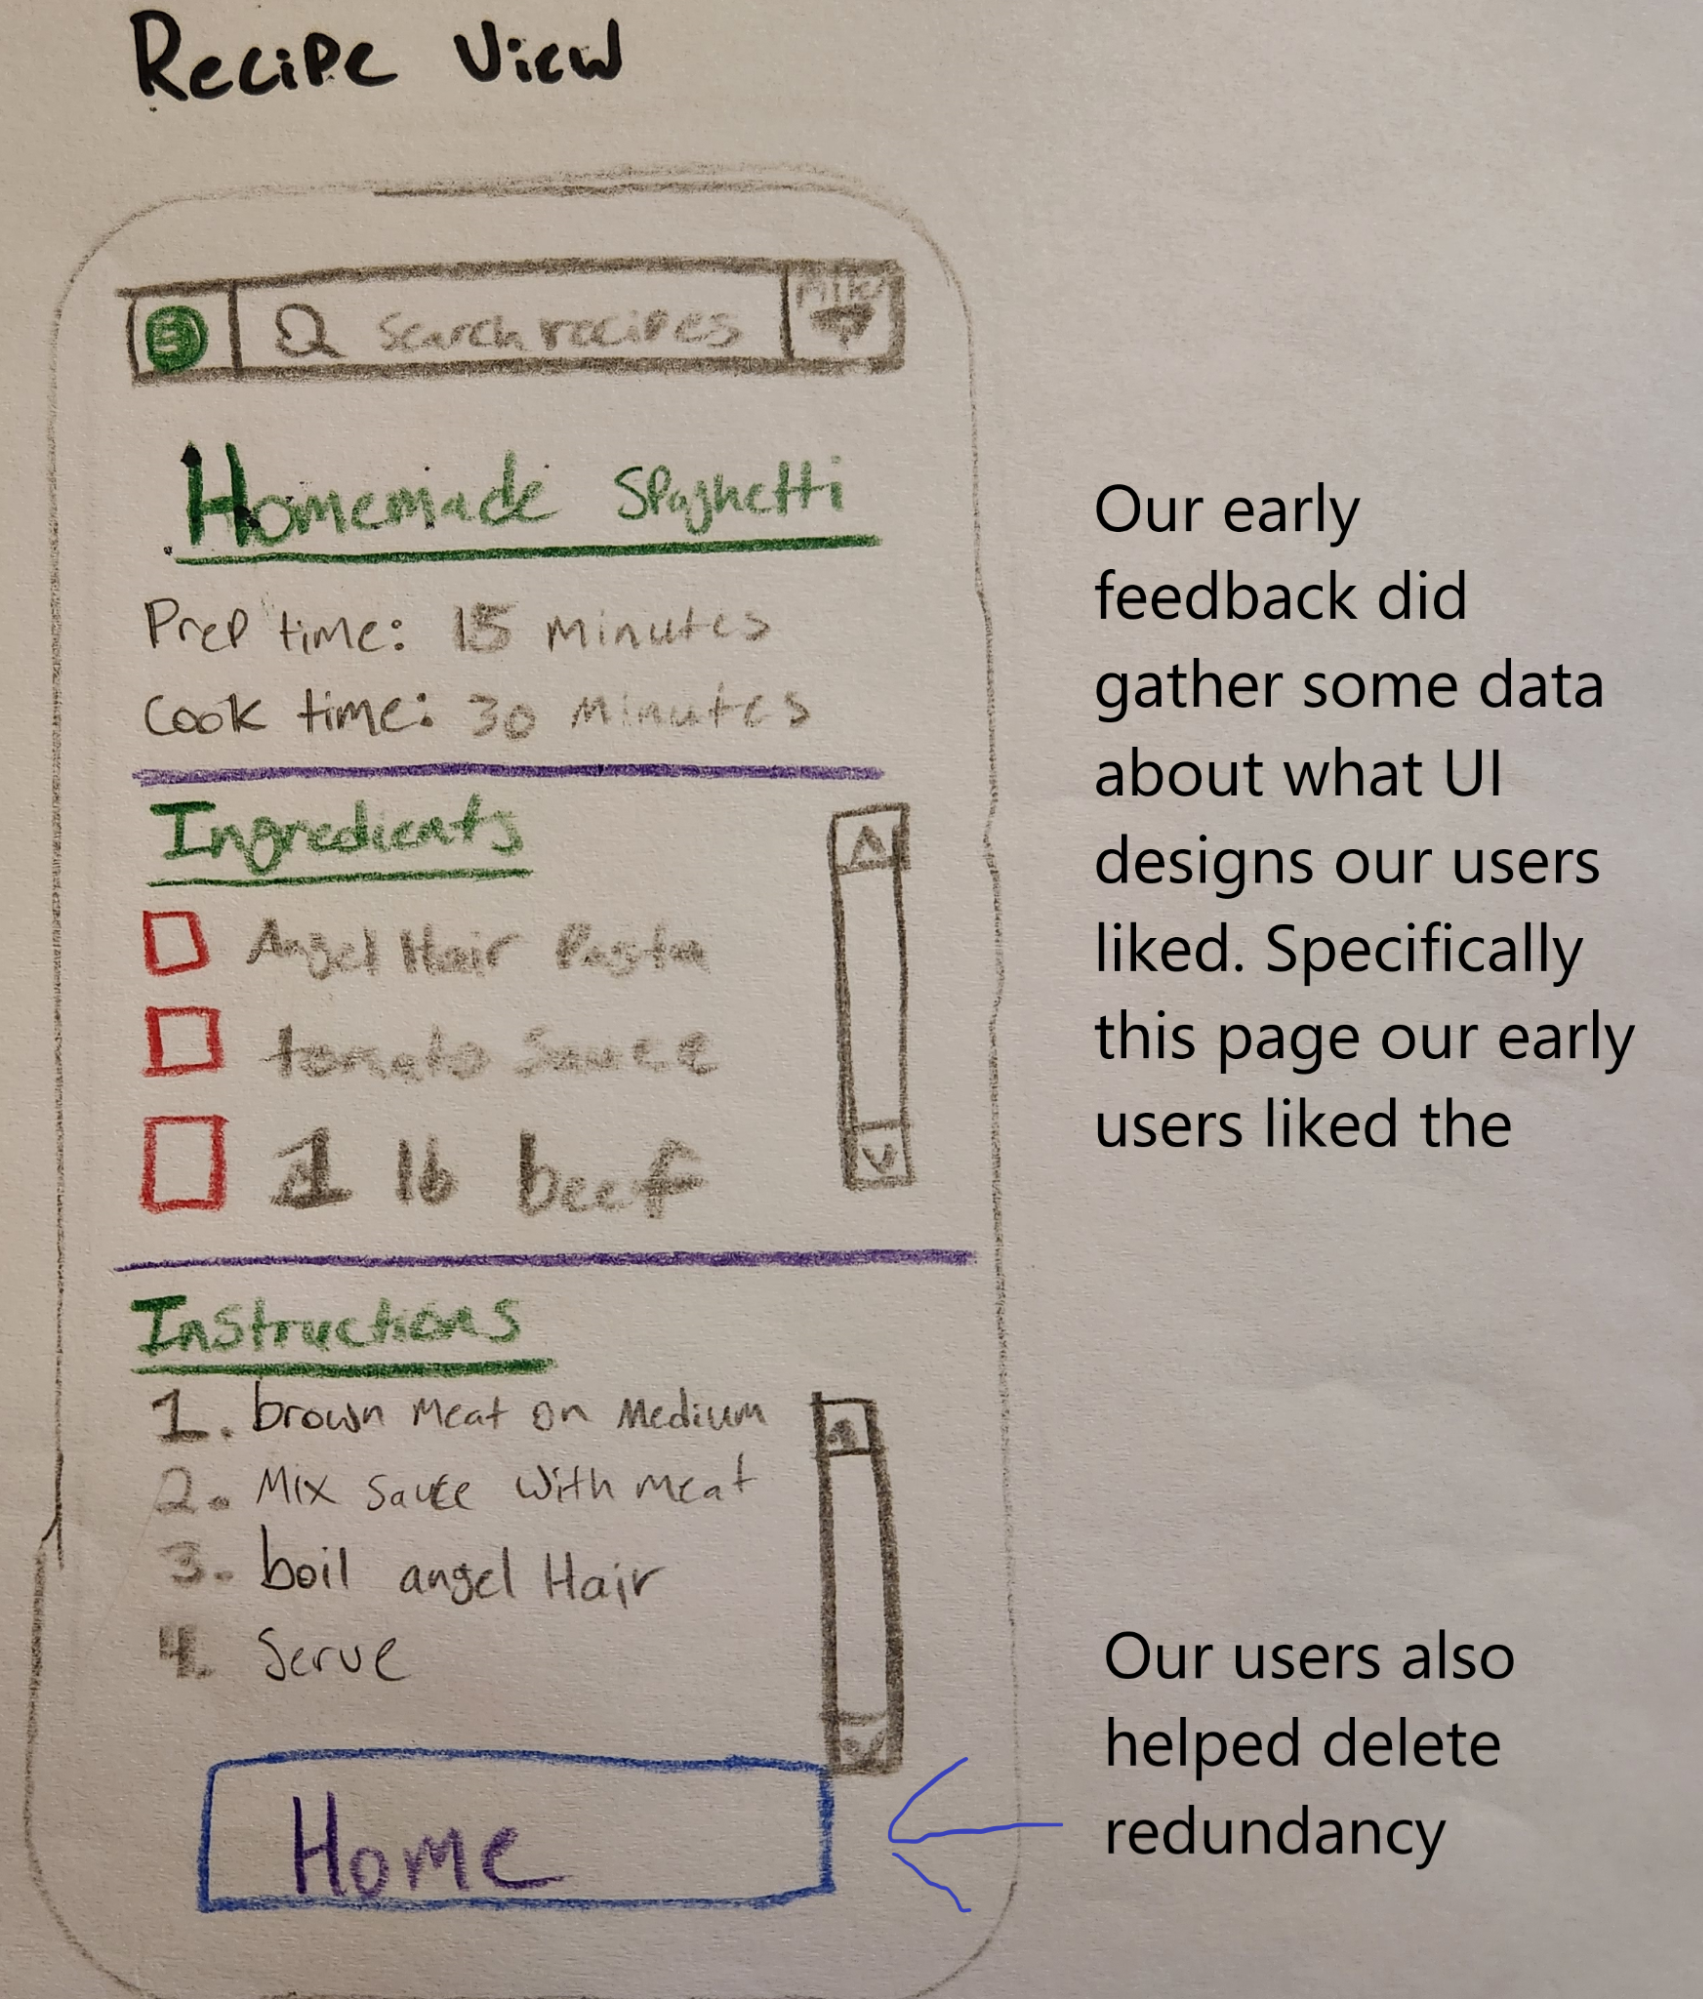 Recipe View
Search recipes
Homemade Spaghetti
Prep time: 15 minutes
Cook time: 30 minutes
Ingredients
Angel Hair Pasta
tomato Sauce
1 lb beef
Instructions
1. brown meat on Medium
2. Mix sauce with meat
3. boil angel Hair
4. Serve
Home
Our early
feedback did
gather some data
about what UI
designs our users
liked. Specifically
this page our early
users liked the
Our users also
helped delete
redundancy